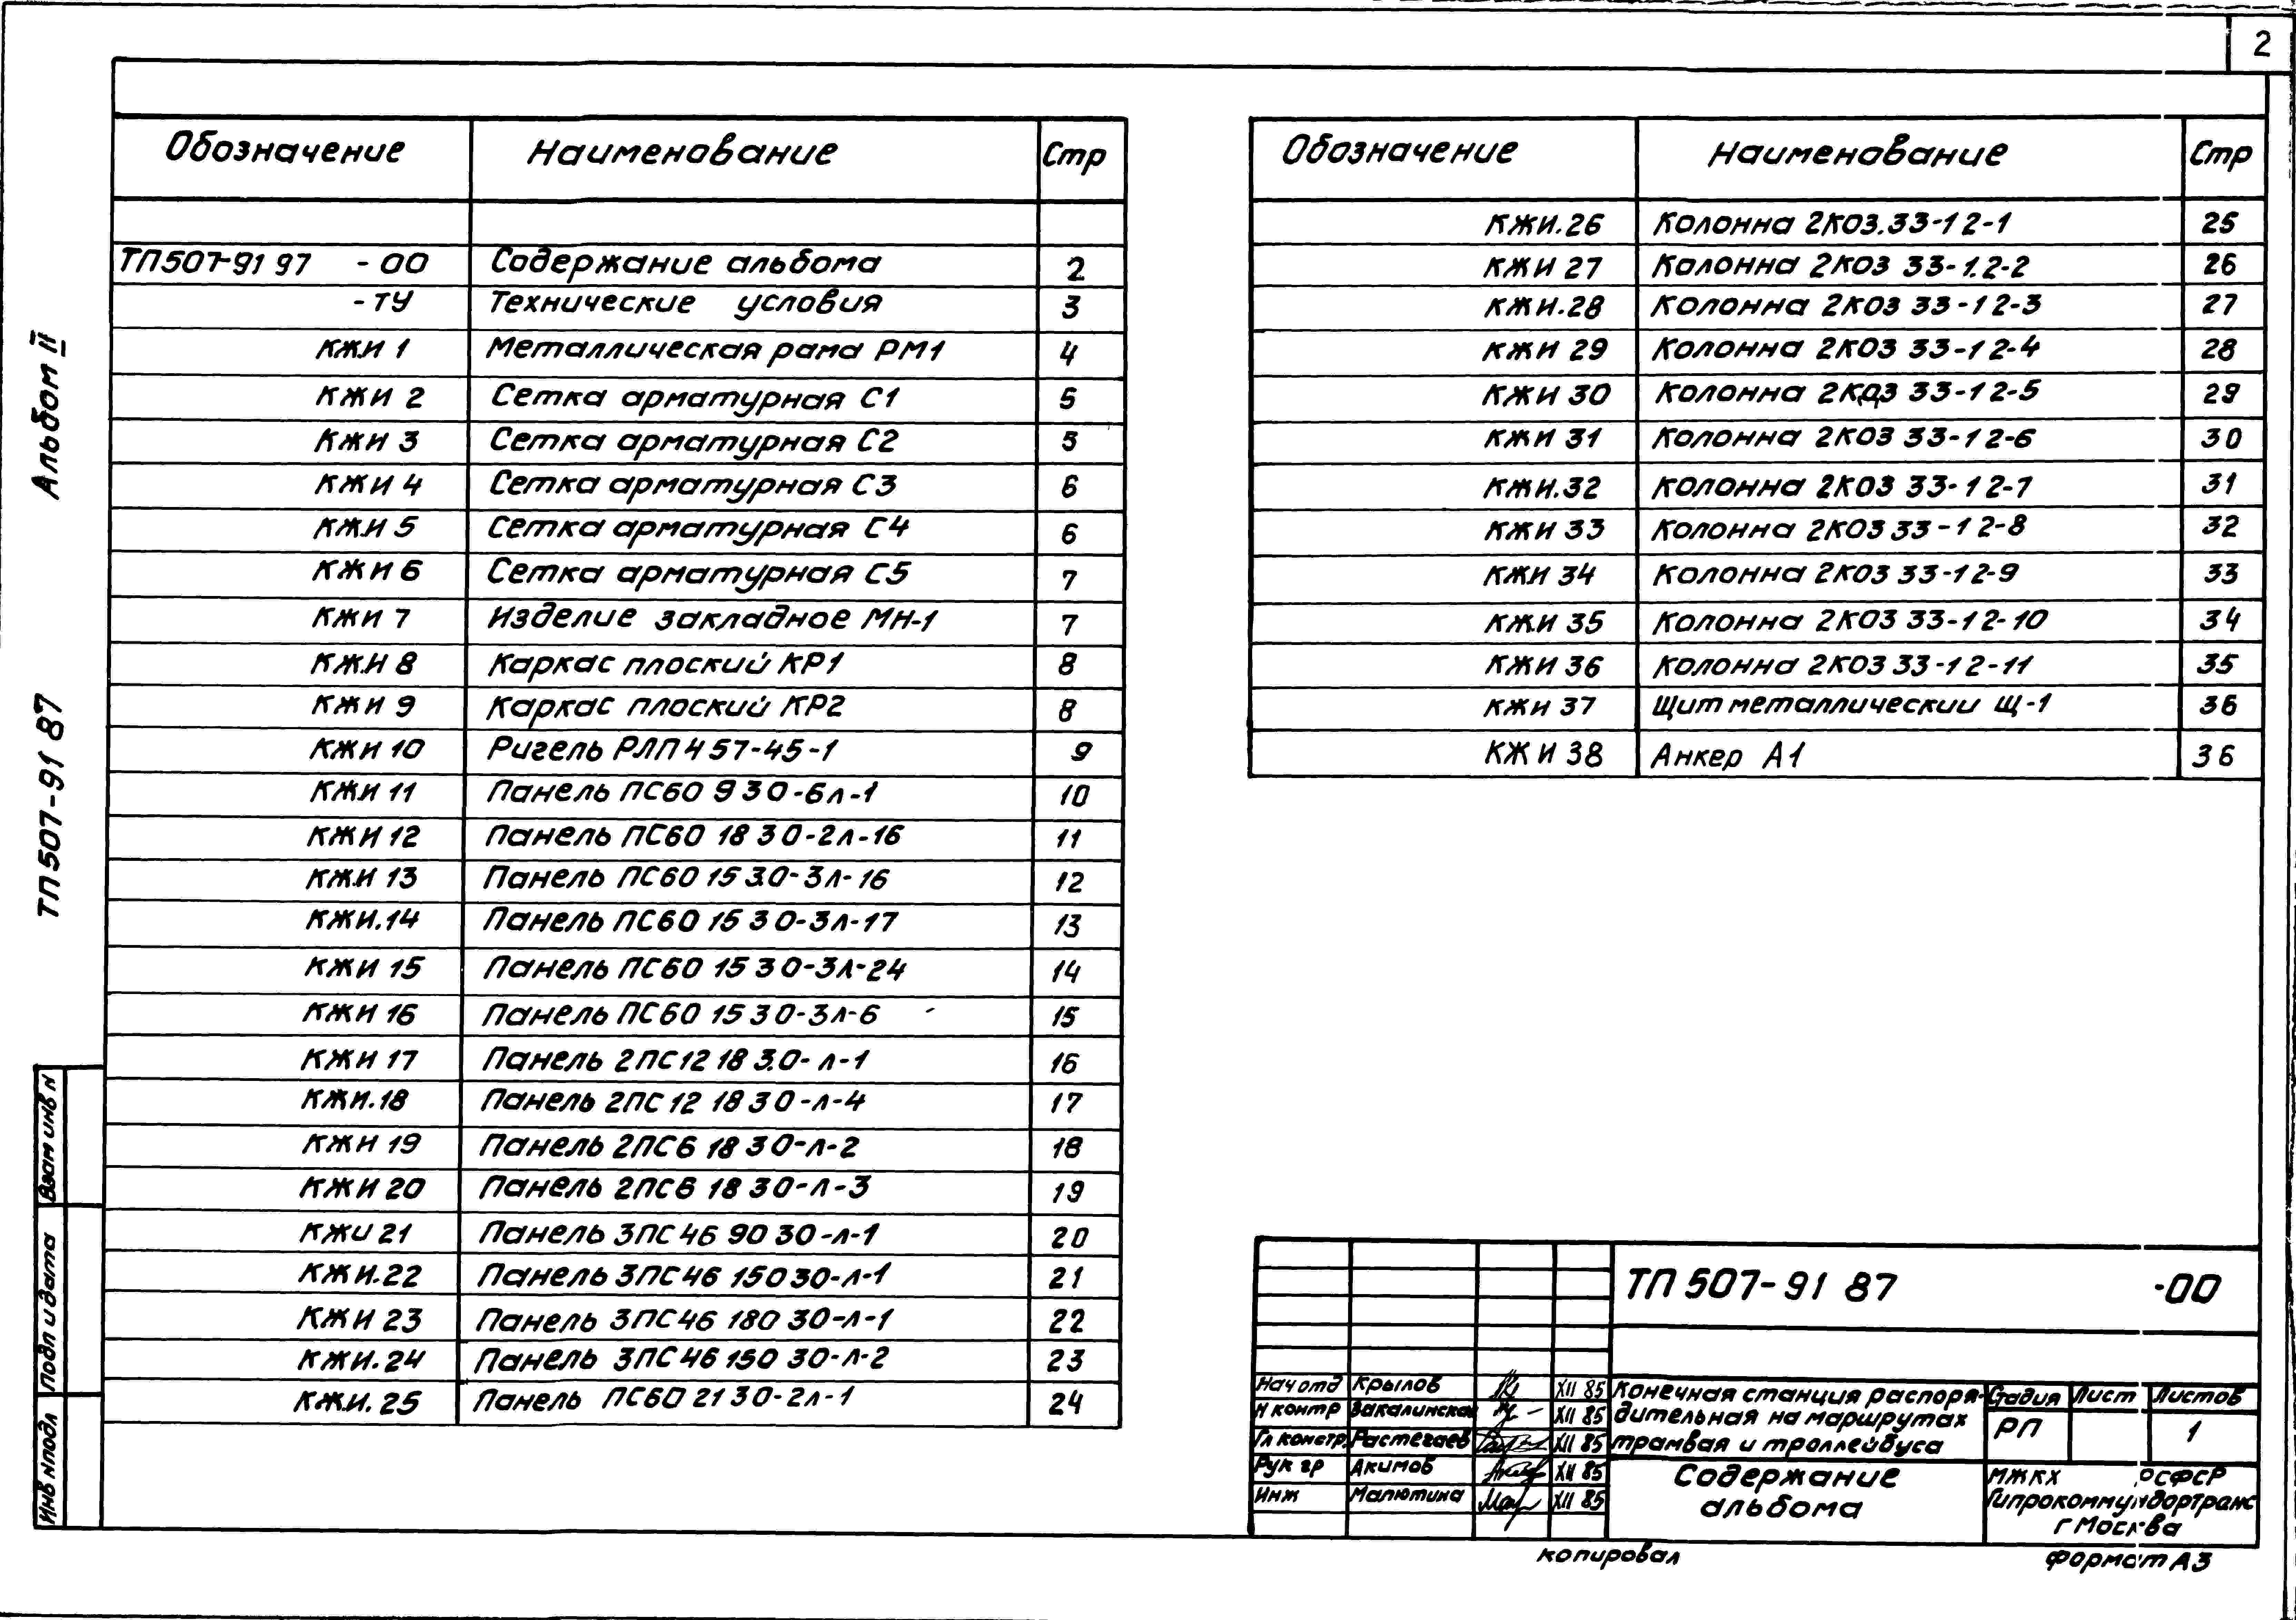 2
Обозначение Наименование Стр
ТП507-91 97 -00 Содержание альбома 2
-ТУ Технические условия 3
КЖИ 1 Металлическая рама РМ1 4
КЖИ 2 Сетка арматурная С1 5
КЖИ 3 Сетка арматурная С2 5
КЖИ 4 Сетка арматурная С3 6
КЖИ 5 Сетка арматурная С4 6
КЖИ 6 Сетка арматурная С5 7
КЖИ 7 Изделие закладное МН-1 7
КЖИ 8 Каркас плоский КР1 8
КЖИ 9 Каркас плоский КР2 8
КЖИ 10 Ригель РЛП4 57-45-1 9
КЖИ 11 Панель ПС60 9 30-6л-1 10
КЖИ 12 Панель ПС60 18 30-2л-16 11
КЖИ 13 Панель ПС60 15 3.0-3л-16 12
КЖИ.14 Панель ПС60 15 30-3л-17 13
КЖИ 15 Панель ПС60 15 30-3л-24 14
КЖИ 16 Панель ПС60 15 30-3л-6 15
КЖИ 17 Панель 2ПС12 18 3.0-л-1 16
КЖИ.18 Панель 2ПС12 18 30-л-4 17
КЖИ 19 Панель 2ПС6 18 30-л-2 18
КЖИ 20 Панель 2ПС6 18 30-л-3 19
КЖИ 21 Панель 3ПС46 90 30-л-1 20
КЖИ.22 Панель 3ПС46 150 30-л-1 21
КЖИ 23 Панель 3ПС46 180 30-л-1 22
КЖИ.24 Панель 3ПС46 150 30-л-2 23
КЖИ.25 Панель ПС60 21 30-2л-1 24
Обозначение Наименование Стр
КЖИ.26 Колонна 2КО3.33-1 2-1 25
КЖИ 27 Колонна 2КО3 33-1.2-2 26
КЖИ.28 Колонна 2КО3 33-1 2-3 27
КЖИ 29 Колонна 2КО3 33-1 2-4 28
КЖИ 30 Колонна 2КО3 33-1 2-5 29
КЖИ 31 Колонна 2КО3 33-1 2-6 30
КЖИ.32 Колонна 2КО3 33-1 2-7 31
КЖИ 33 Колонна 2КО3 33-1 2-8 32
КЖИ 34 Колонна 2КО3 33-1 2-9 33
КЖИ 35 Колонна 2КО3 33-1 2-10 34
КЖИ 36 Колонна 2КО3 33-1 2-11 35
КЖИ 37 Щит металлический Щ-1 36
КЖИ 38 Анкер А1 36
Альбом II
ТП507-91 87
Взам инв N
Подп и дата
Инв N подл
ТП 507-91 87 -00
Нач отд Крылов XII 85
Н контр Вакалинская XII 85
Гл констр Растегаев XII 85
Рук гр Акимов XII 85
Инж Малютина XII 85
Конечная станция распоря-
дительная на маршрутах
трамвая и троллейбуса
Стадия Лист Листов
РП 1
Содержание
альбома
МЖКХ РСФСР
Гипрокоммундортранс
г Москва
копировал
формат А3